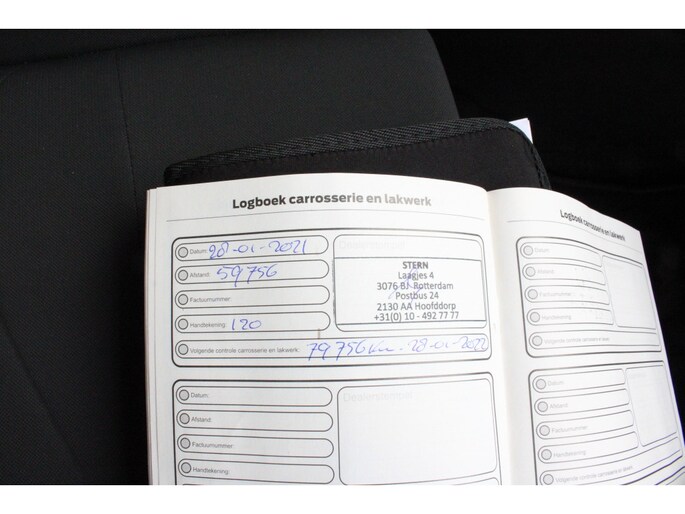 Logboek carrosserie en lakwerk
Datum: 28-01-2021
Afstand: 59756
Factuurnummer:
Handtekening: 120
Dealerstempel
STERN
Laagjes 4
3076 BJ Rotterdam
Postbus 24
2130 AA Hoofddorp
+31(0) 10 - 492 77 77
Volgende controle carrosserie en lakwerk: 79756km - 28-01-2022
Datum:
Afstand:
Factuurnummer:
Handtekening:
Dealerstempel
Logboek carrosserie en lakwerk
Datum:
Afstand:
Factuurnummer:
Handtekening:
Volgende controle carrosserie en lakwerk:
Datum:
Afstand:
Factuurnummer:
Handtekening:
Volgende controle carrosserie en lakwerk: